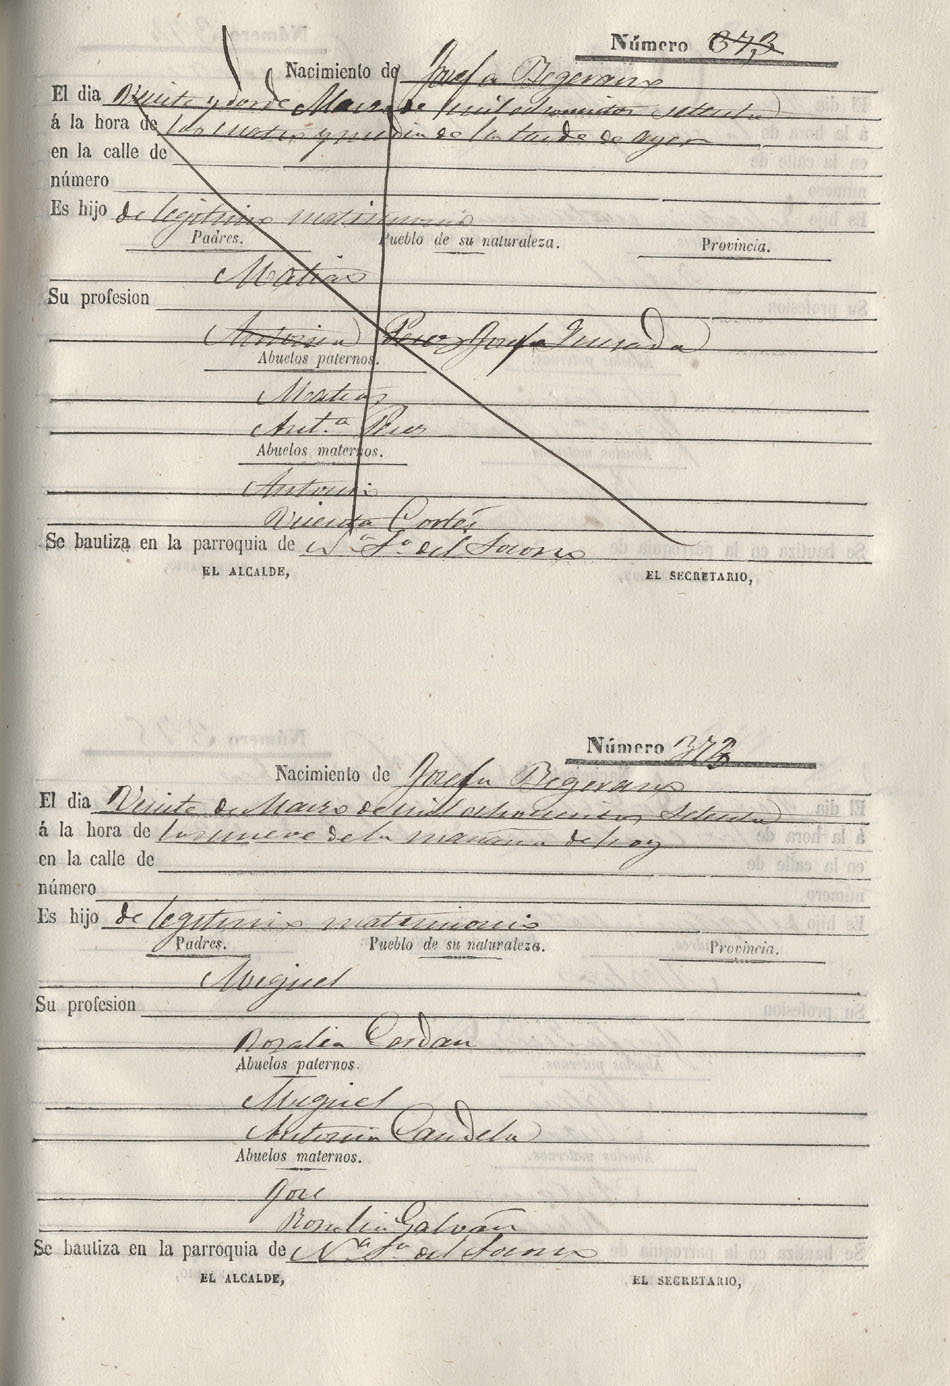 Número 373
Nacimiento de Josefa Begerano
El dia Veinte y dos de Marzo de mil ochocientos setenta
á la hora de las cuatro y media de la tarde de ayer
en la calle de
número
Es hijo de legitimo matrimonio
Padres. Pueblo de su naturaleza. Provincia.
Matias
Su profesion
Antonia Perez Josefa
Abuelos paternos.
Matias
Ant.ª Perez
Abuelos maternos.
Antonio
Vicenta Cortés
Se bautiza en la parroquia de Nª Sª del Socorro
EL ALCALDE, EL SECRETARIO,
Número 373
Nacimiento de Josefa Begerano
El dia Veinte de Marzo de mil ochocientos Setenta
á la hora de las nueve de la mañana de hoy
en la calle de
número
Es hijo de legitimo matrimonio
Padres. Pueblo de su naturaleza. Provincia.
Miguel
Su profesion
Rosalia Cerdan
Abuelos paternos.
Miguel
Antonia Candela
Abuelos maternos.
José
Rosalia Galvañ
Se bautiza en la parroquia de Nª Sª del Socorro
EL ALCALDE, EL SECRETARIO,